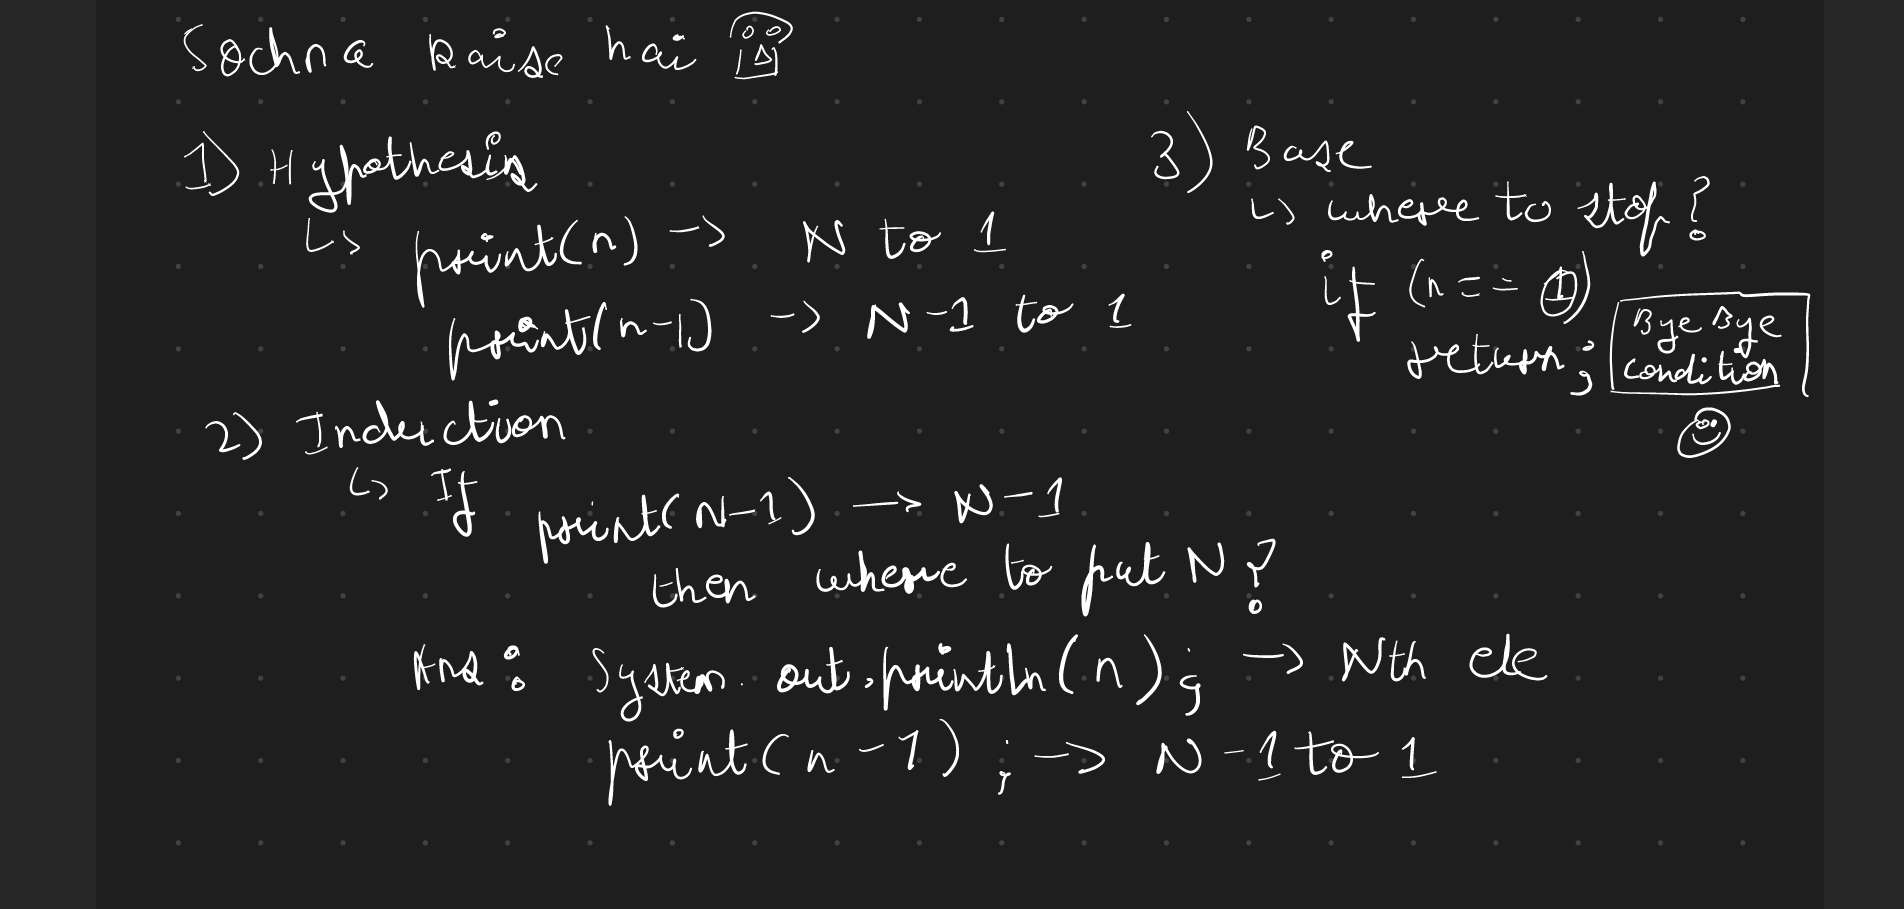 Sochna kaise hai
1) Hypothesis
↳ print(n) -> N to 1
print(n-1) -> N-1 to 1
2) Induction
↳ If print(N-1) -> N-1
then where to put N?
Ans: System.out.println(n); -> Nth ele
print(n-1); -> N-1 to 1
3) Base
↳ where to stop?
if (n == 1)
return;
Bye Bye
condition